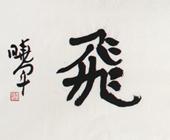 飛
曉平